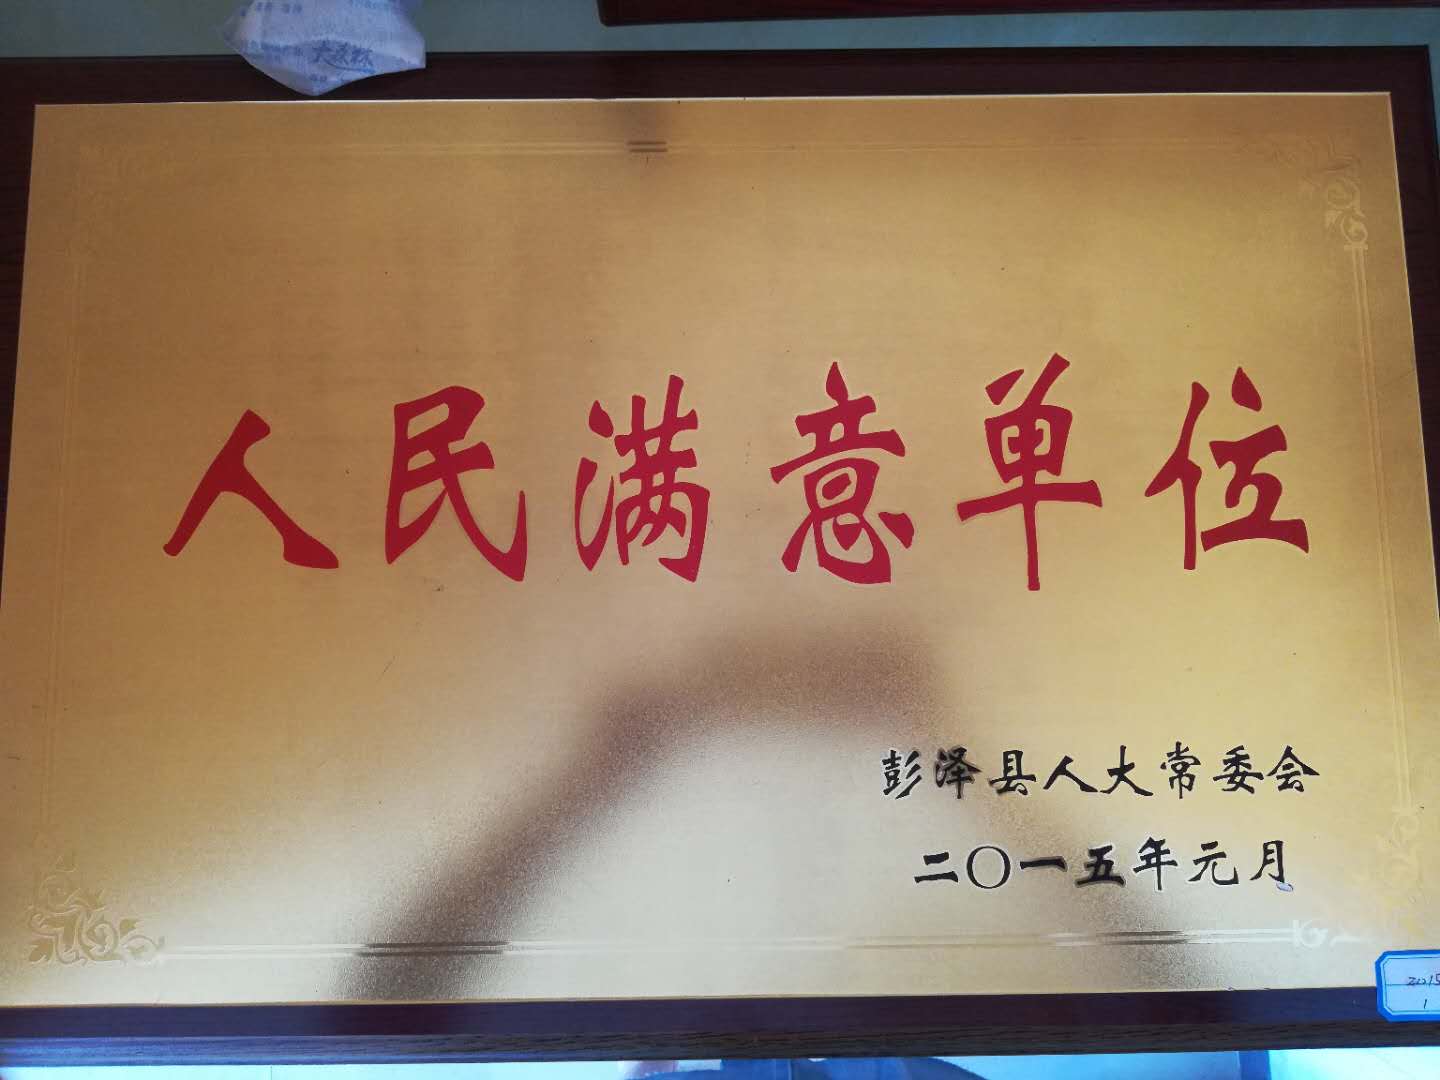 大麻糕
人民满意单位
彭泽县人大常委会
二〇一五年元月
2015
1